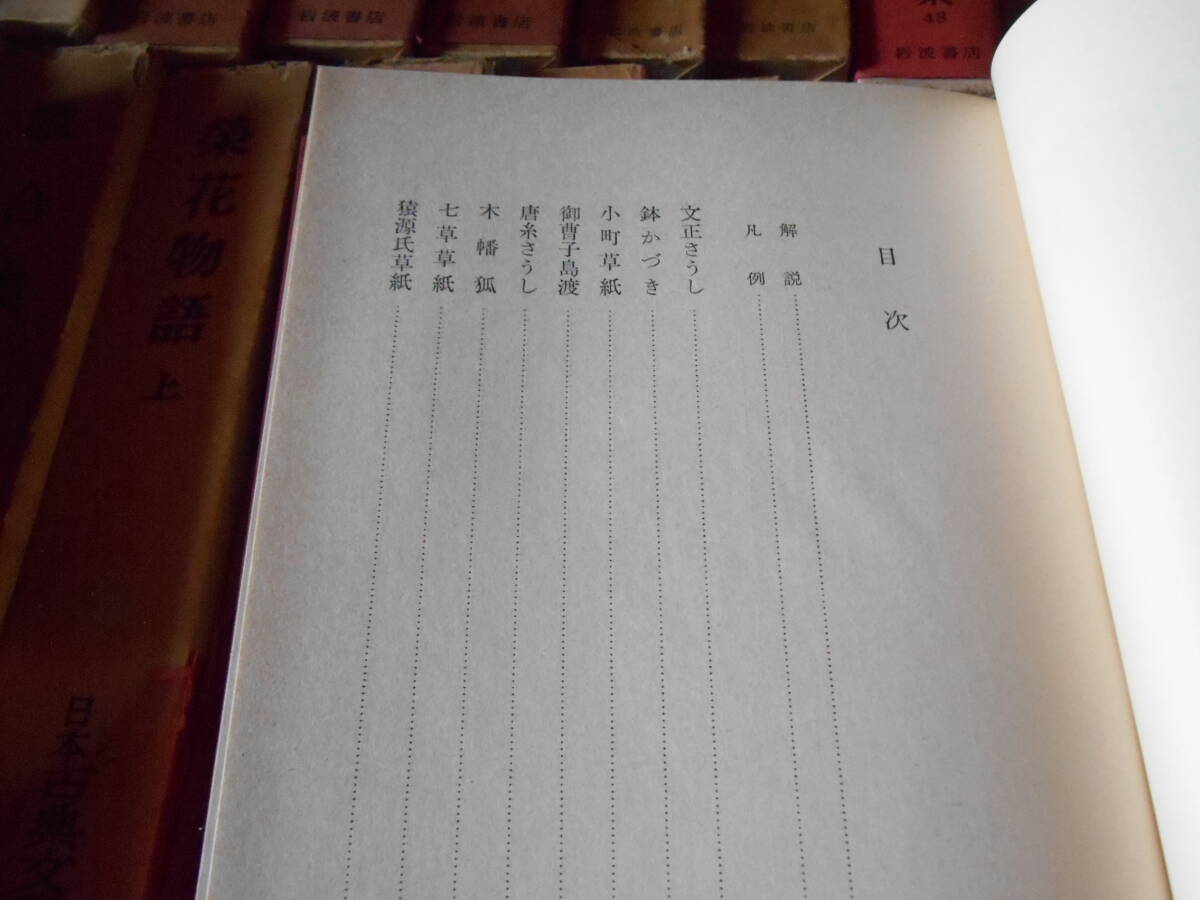 目次
解説
凡例
文正さうし
鉢かづき
小町草紙
御曹子島渡
唐糸さうし
木幡狐
七草草紙
猿源氏草紙
栄花物語 上
日本古典文
岩波書店
岩波書店
岩波書店
岩波書店
岩波書店
48
岩波書店